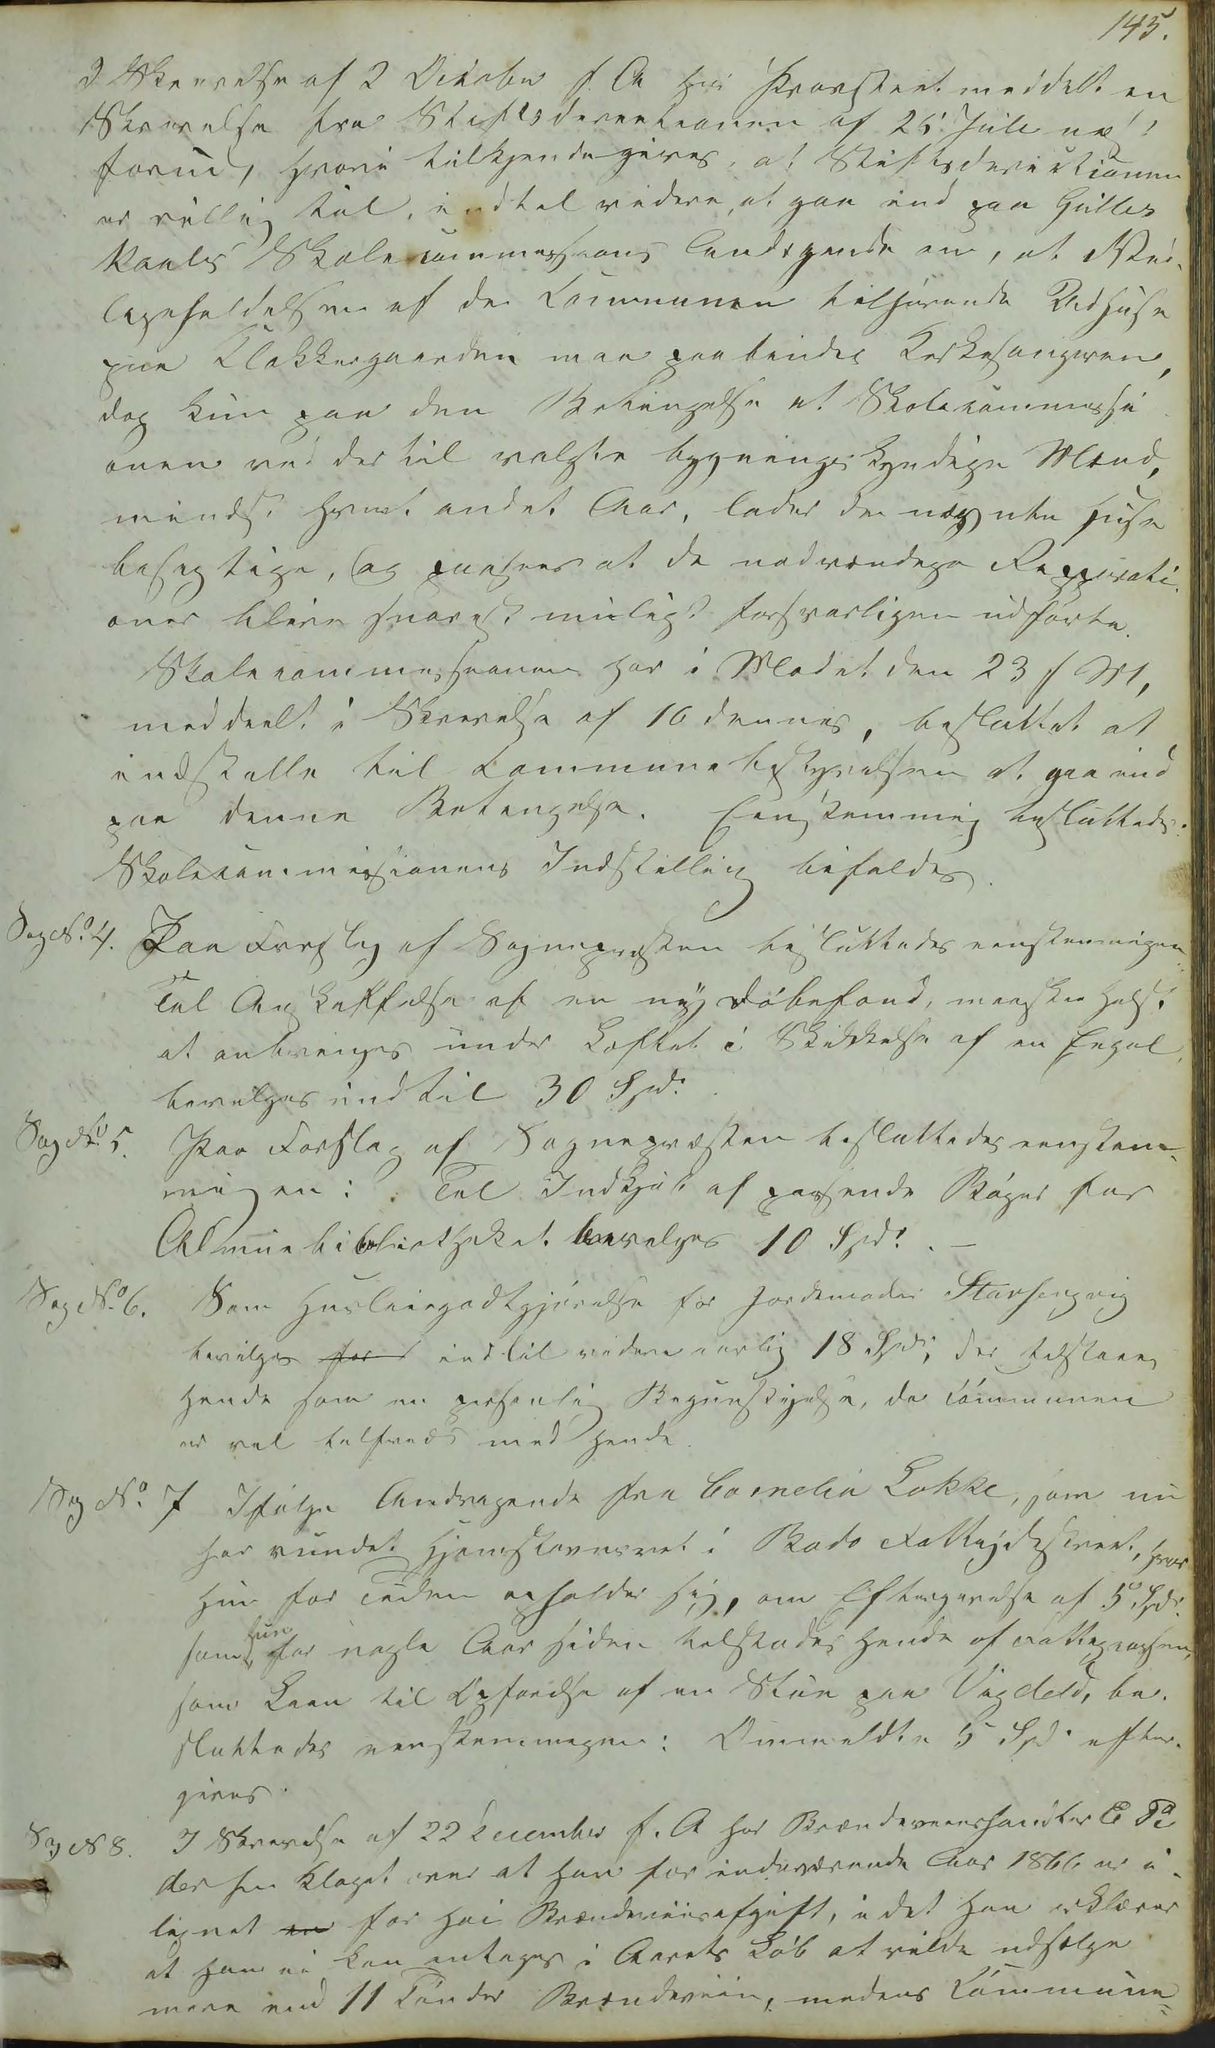 145.
I Skrivelse af 2 Oktober f. A har Provstiet meddelt en
Skrivelse fra Stiftsdirectionen af 25 Juli næst
forud, hvori tilkjendegives, at Stiftsdirectionen
er villig til, indtil videre, at gaa ind paa
Skolecommissions Andragende om, at Ved-
ligeholdelsen af de Communen tilhørende Udhuse
paa Klokkergaarden maa paabindes Kirkesangeren,
dog kun paa den Betingelse at Skolecommissi
onen ved dertil valgte bygningskyndige Mænd,
mindst hvert andet Aar, lader de nævnte Huse
besigtige, og paasees at de nødvendige Repparati-
oner blive snarest muligt forsvarligen udførte.
Skolecommissionen har i Mødet den 23 f M,
meddeelt i Skrivelse af 16 dennes, besluttet at
indstille til Communebestyrelsen at gaa ind
paa denne Betingelse. Eenstemmig besluttedes:
Skolecommissionens Indstilling bifaldes.
Sag No. 4. Paa Forslag af Sognepræsten besluttedes eenstemmigen:
Til Anskaffelse af en ny Døbefond, maaskee helst
at anbringes under Loftet i Skikkelse af en Engel,
bevilges indtil 30 Spd.
Sag No 5. Paa Forslag af Sognepræsten besluttedes eenstem-
migen: Til Indkjøb af passende Bøger for
Almuebibliotheket bevilges 10 Spd. —
Sag No. 6. Som Huusleiegodtgjørelse for Jordemoder Stavseng
bevilges for indtil videre aarlig 18 Spd, der tilstaaes
hende som en personlig Begunstigelse, da Communen
er vel tilfreds med hende.
Sag No. 7 Ifølge Andragende fra Cornelia Løkke, som nu
har vundet Hjemstavnsret i Bodø Fattigdistrict, hvor
hun for Tiden opholder sig, om Eftergivelse af 5 Spd.
som hun for nogle Aar siden tilstodes hende af Fattigcassen,
som Laan til Opførelse af en Stue paa be-
sluttedes eenstemmigen: Ommeldte 5 Spd. efter-
gives.
Sag N 8. I Skrivelse af 22 December f. A har Brændeviinshandler E Pe
dersen klaget over at han for indeværende Aar 1866 er i-
lignet en for høi Brændeviinsafgift, idet han erklærer
at han ei kan antages i Aarets Løb at ville udsælge
mere end 11 Tønder Brændeviin, medens Commune-